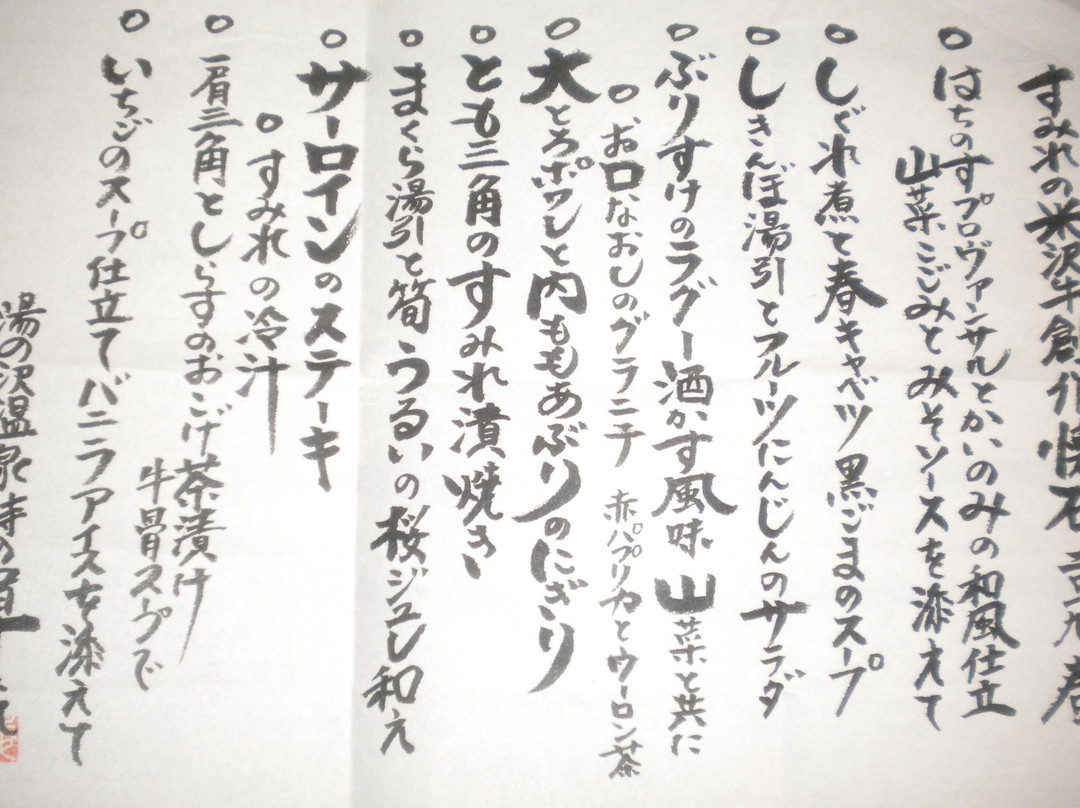 すみれの米沢牛創作懐石
○はちのすプロヴァンサルとかいのみの和風仕立
山菜こごみとみそソースを添えて
○しぐれ煮と春キャベツ黒ごまのスープ
○しきんぼ湯引とフルーツにんじんのサラダ
○ぶりすけのラグー酒かす風味 山菜と共に
○お口なおしのグラニテ 赤パプリカとウーロン茶
○大とろポワレと内ももあぶりのにぎり
○とも三角のすみれ漬焼き
○まくら湯引と筍うるいの桜ジュレ和え
○サーロインのステーキ
○すみれの冷汁
○肩三角としらすのおこげ茶漬け
牛骨スープで
○いちごのスープ仕立てバニラアイスを添えて
湯の沢温泉 時の宿